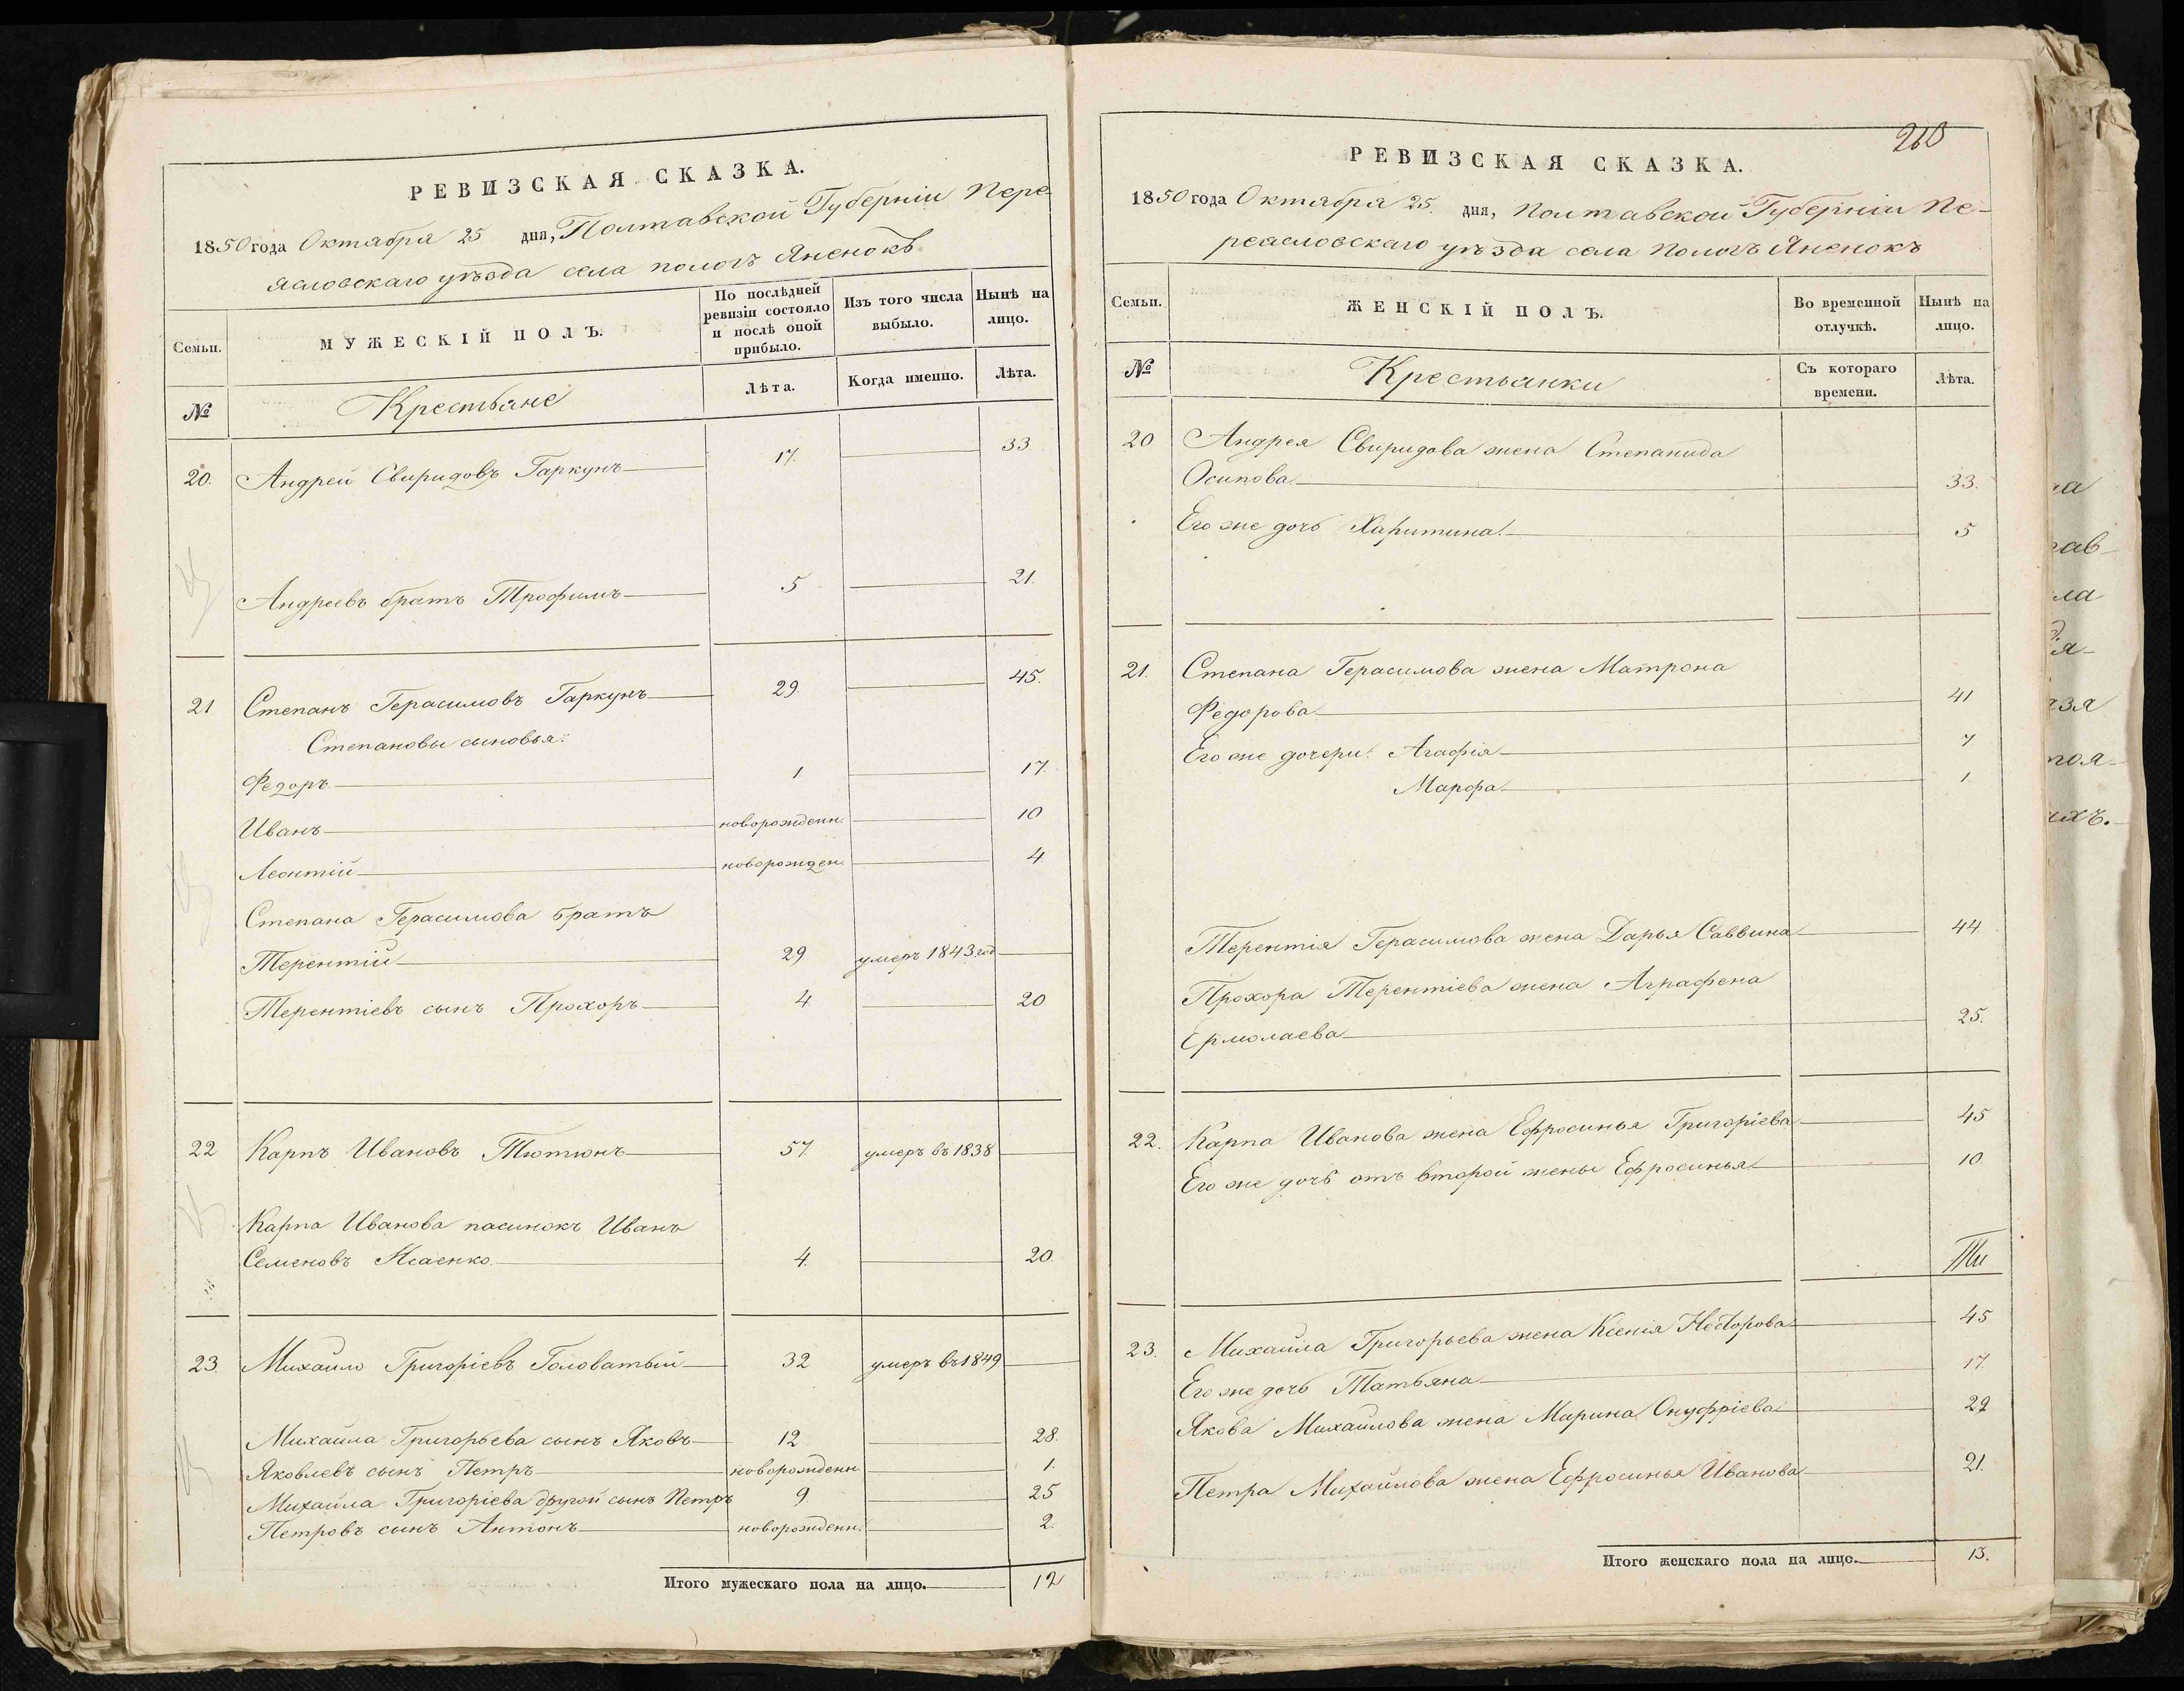 РЕВИЗСКАЯ СКАЗКА.
1850 года Октября 25 дня, Полтавской Губерніи Пере-
яслоvскаго уѣзда села пологъ Яненокъ
Семьи.
МУЖЕСКІЙ ПОЛЪ.
По послѣдней ревизіи состояло и послѣ оной прибыло.
Изъ того числа выбыло.
Нынѣ на лицо.
№
Крестьяне
Лѣта.
Когда именно.
Лѣта.
20. Андрей Свиридовъ Гаркунъ 17. 33
Андреевъ братъ Трофимъ 5 21.
21 Степанъ Герасимовъ Гаркунъ 29. 45.
Степановы сыновья:
Федоръ 1 17.
Иванъ новорожденн. 10
Леонтій новорожден. 4
Степана Герасимова братъ
Терентій 29 умеръ 1843 год
Терентіевъ сынъ Прохоръ 4 20
22 Карпъ Ивановъ Тютюнъ 57. умеръ въ 1838
Карпа Иванова пасинокъ Иванъ
Семеновъ Исаенко 4. 20.
23. Михайло Григоріевъ Головатый 32 умеръ въ 1849
Михайла Григорьева сынъ Яковъ 12 28.
Яковлевъ сынъ Петръ новорожденн. 1.
Михайла Григоріева другой сынъ Петръ 9 25
Петровъ сынъ Антонъ новорожденн. 2.
Итого мужескаго пола на лицо. 12
260
РЕВИЗСКАЯ СКАЗКА.
1850 года Октября 25. дня, Полтавской Губерніи Пе-
реясловскаго уѣзда села Пологъ Яненокъ
Семьи.
ЖЕНСКІЙ ПОЛЪ.
Во временной отлучкѣ.
Нынѣ на лицо.
№
Крестьянки
Съ котораго времени.
Лѣта.
20 Андрея Свиридова жена Степанида
Осипова 33.
Его же дочь Харитина 5
21. Степана Герасимова жена Матрона
Федорова 41
Его же дочери: Агафія 7
Марфа 1
Терентія Герасимова жена Дарья Саввина 44
Прохора Терентіева жена Аграфена
Ермолаева 25.
22. Карпа Иванова жена Ефросинья Григоріева 45
Его же дочь отъ второй жены Ефросинья 10
23. Михайла Григорьева жена Ксенія Несторова 45
Его же дочь Татьяна 17.
Якова Михайлова жена Марина Онуфріева 29
Петра Михайлова жена Ефросинья Иванова 21.
Итого женскаго пола на лицо. 13.